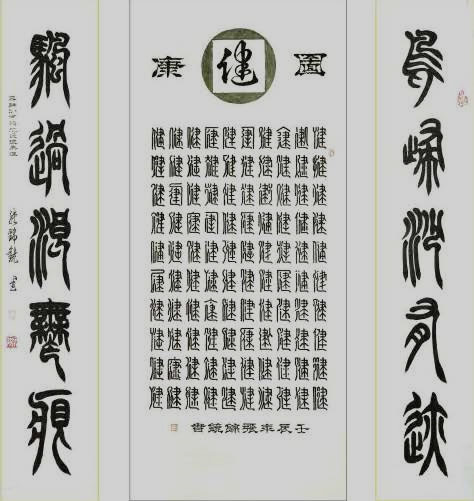 鳥歸沙有迹
圖健康
健健健健健健健健健健
健健健健健健健健健健
健健健健健健健健健健
健健健健健健健健健健
健健健健健健健健健健
健健健健健健健健健健
健健健健健健健健健健
健健健健健健健健健健
健健健健健健健健健健
健健健健健健健健健健
壬辰年張錦書
颿過浪無痕